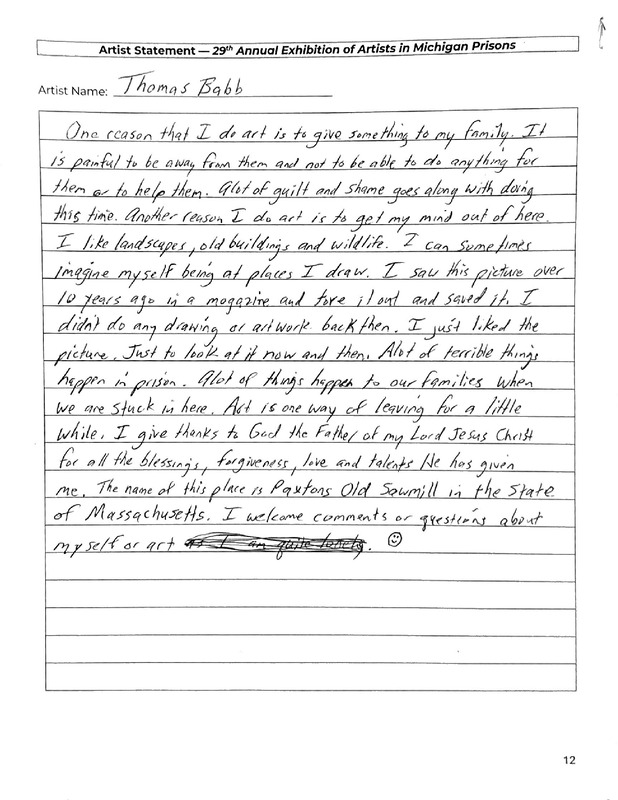 Artist Statement — 29th Annual Exhibition of Artists in Michigan Prisons
Artist Name: Thomas Babb
One reason that I do art is to give something to my family. It
is painful to be away from them and not to be able to do anything for
them or to help them. Alot of guilt and shame goes along with doing
this time. Another reason I do art is to get my mind out of here.
I like landscapes, old buildings and wildlife. I can sometimes
imagine myself being at places I draw. I saw this picture over
10 years ago in a magazine and tore it out and saved it. I
didn't do any drawing or artwork back then. I just liked the
picture. Just to look at it now and then. Alot of terrible things
happen in prison. Alot of things happen to our families when
we are stuck in here. Art is one way of leaving for a little
while. I give thanks to God the Father of my Lord Jesus Christ
for all the blessings, forgiveness, love and talents He has given
me. The name of this place is Paxtons Old Sawmill in the State
of Massachusetts. I welcome comments or questions about
myself or art as I am quite lonely. ☺
12